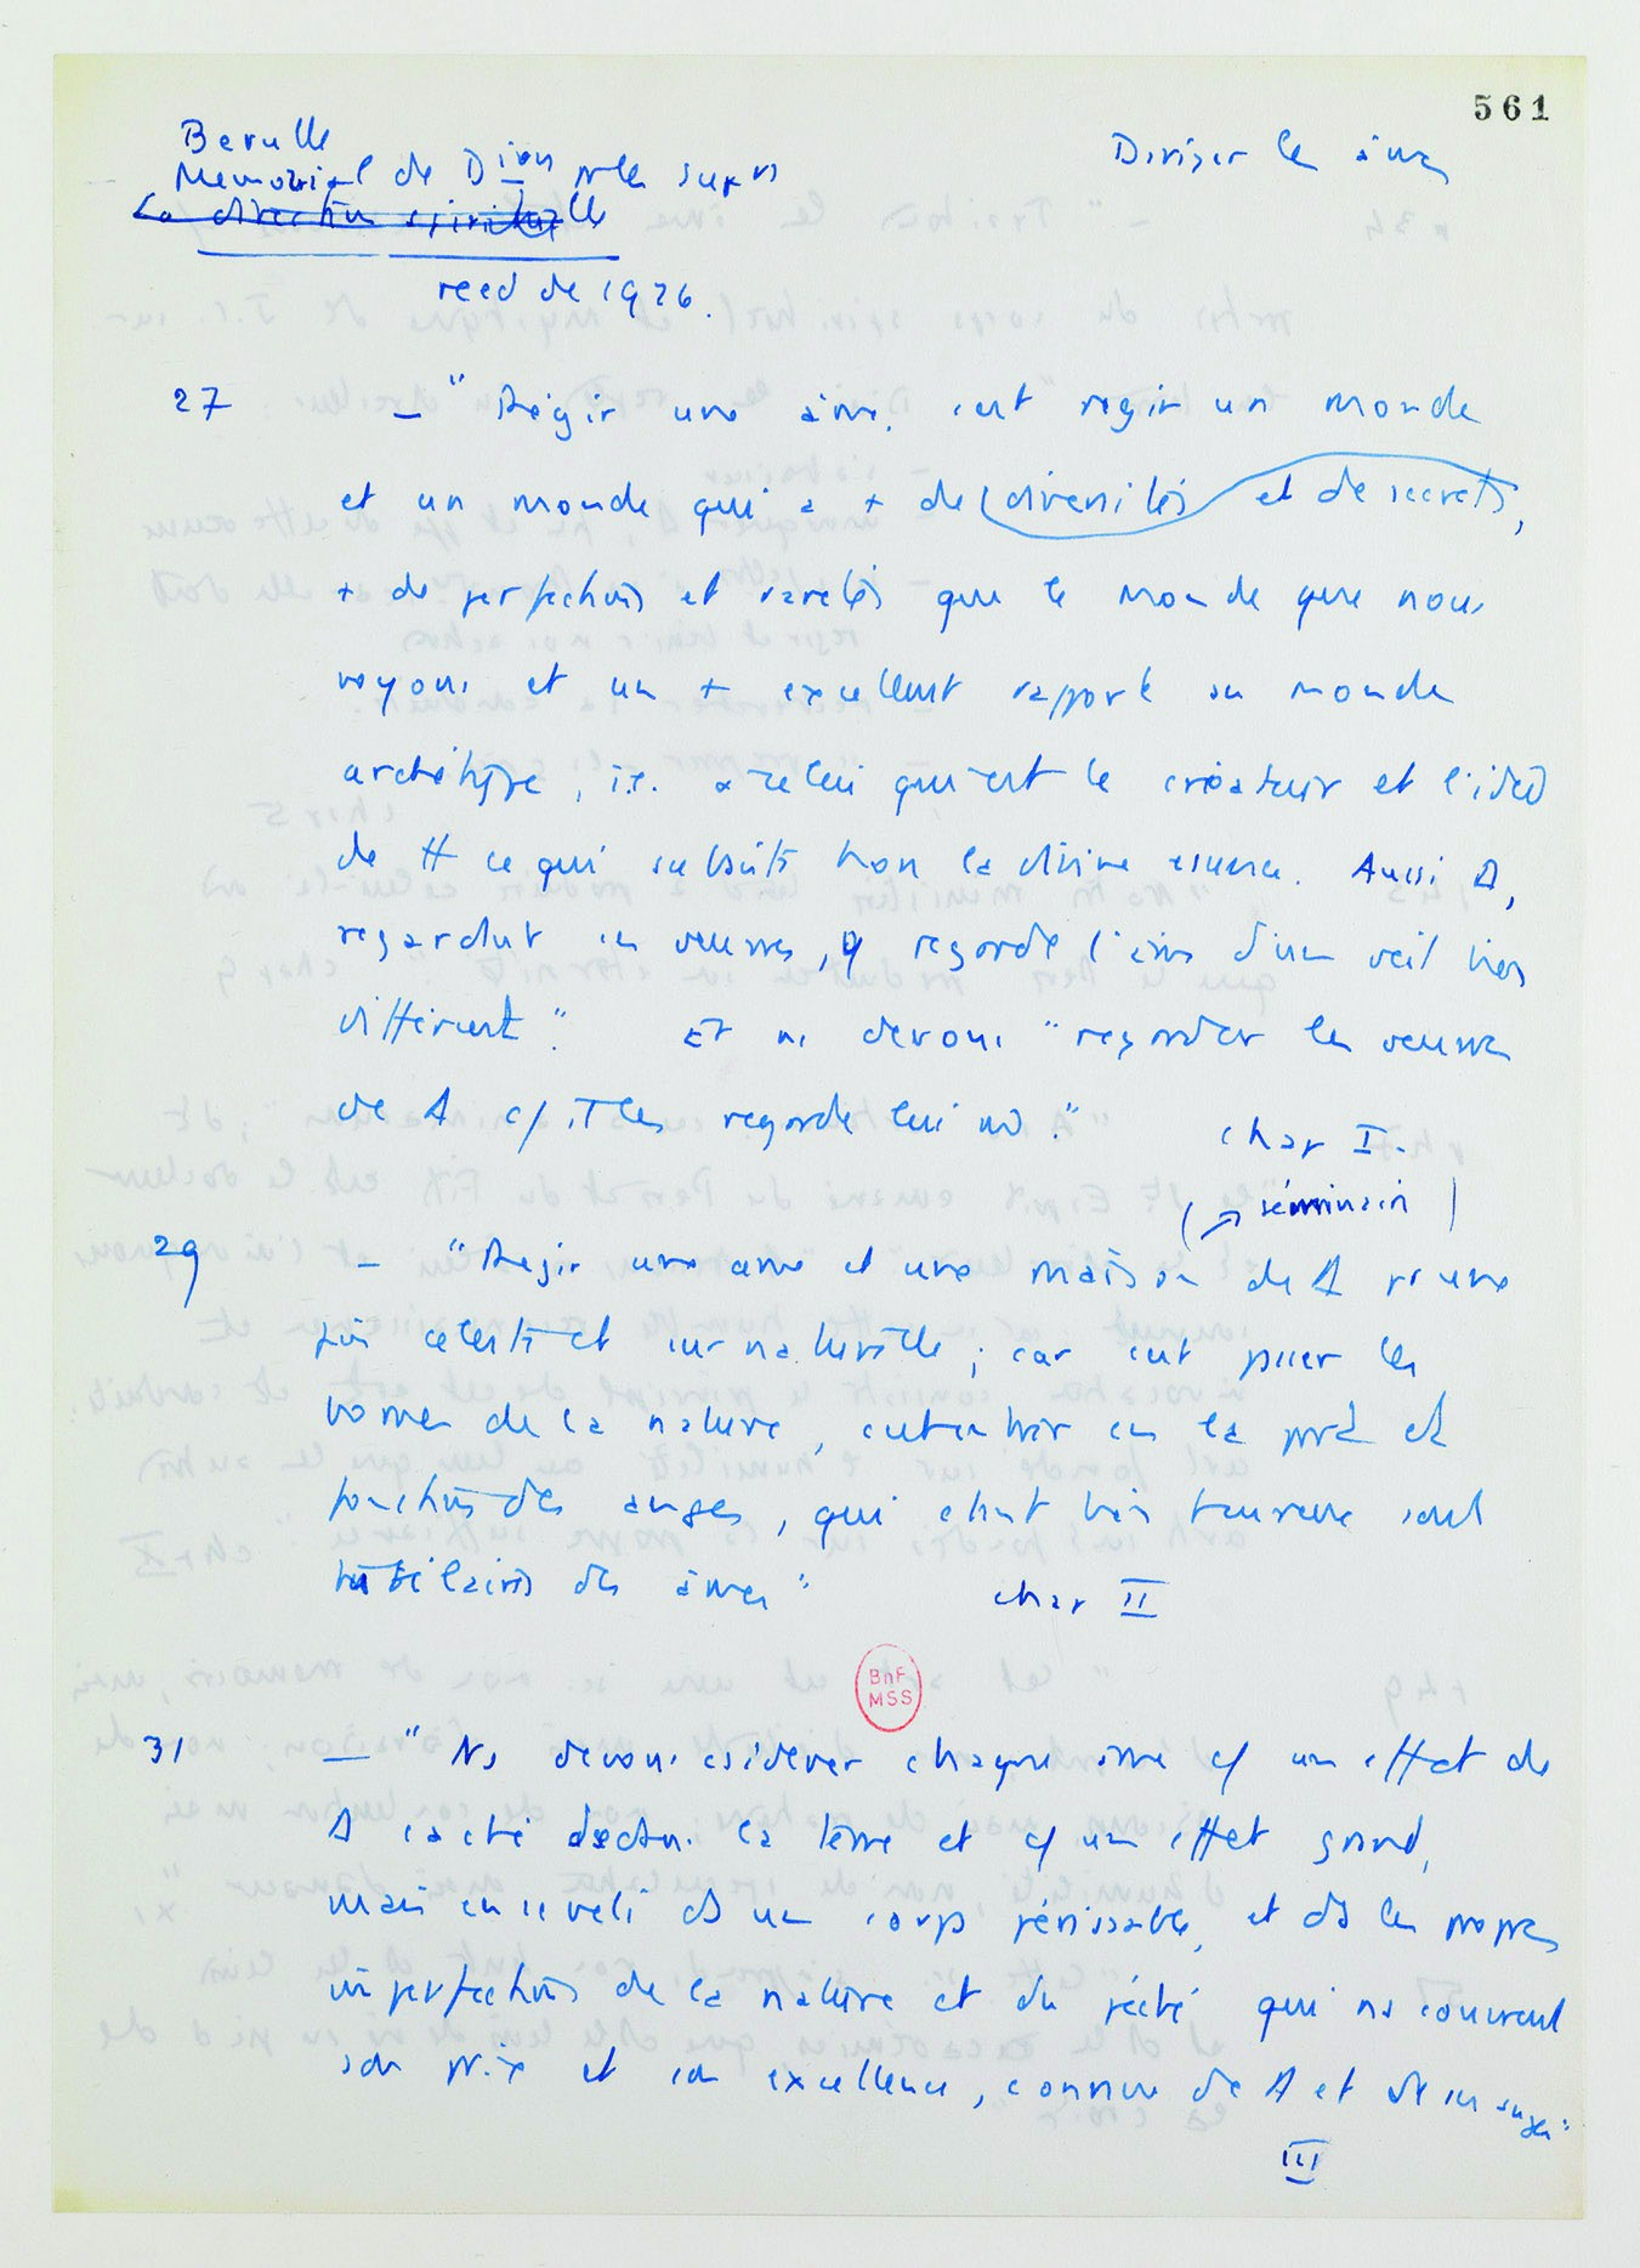 561
Berulle
Memorial de Dion pr les sup rs
La direction spirituelle
Diriger les âmes
reed de 1926.
27 — "Régir une âme, c'est regir un monde
et un monde qui a + de diversités et de secrets,
+ de perfections et raretés que le monde que nous
voyons et un + excellent rapport au monde
archétype, i.e. a celui qui est le créateur et l'idée
de tt ce qui subsiste hors la divine essence. Aussi D,
regardant ses œuvres, il regarde l'âme d'un œil bien
différent". Et ns devons "regarder les œuvres
de D c/ il les regarde lui m̂." chap I.
(→ séminaire)
29 — "Regir une ame et une maison de D
célestes et surnaturelle ; car c'est passer les
bornes de la nature, entrer en la et
fonctions des anges, qui étant sont
tutélaires des âmes" chap II
BnF
MSS
31 — "Ns devons csiderer chaque âme c/ un effet de
D caché dedans la terre et c/ un effet grand,
mais enseveli ds un corps périssable, et ds les propres
imperfections de la nature et du péché qui ns couvrent
son prix et son excellence, connue de D et de ses anges"
III